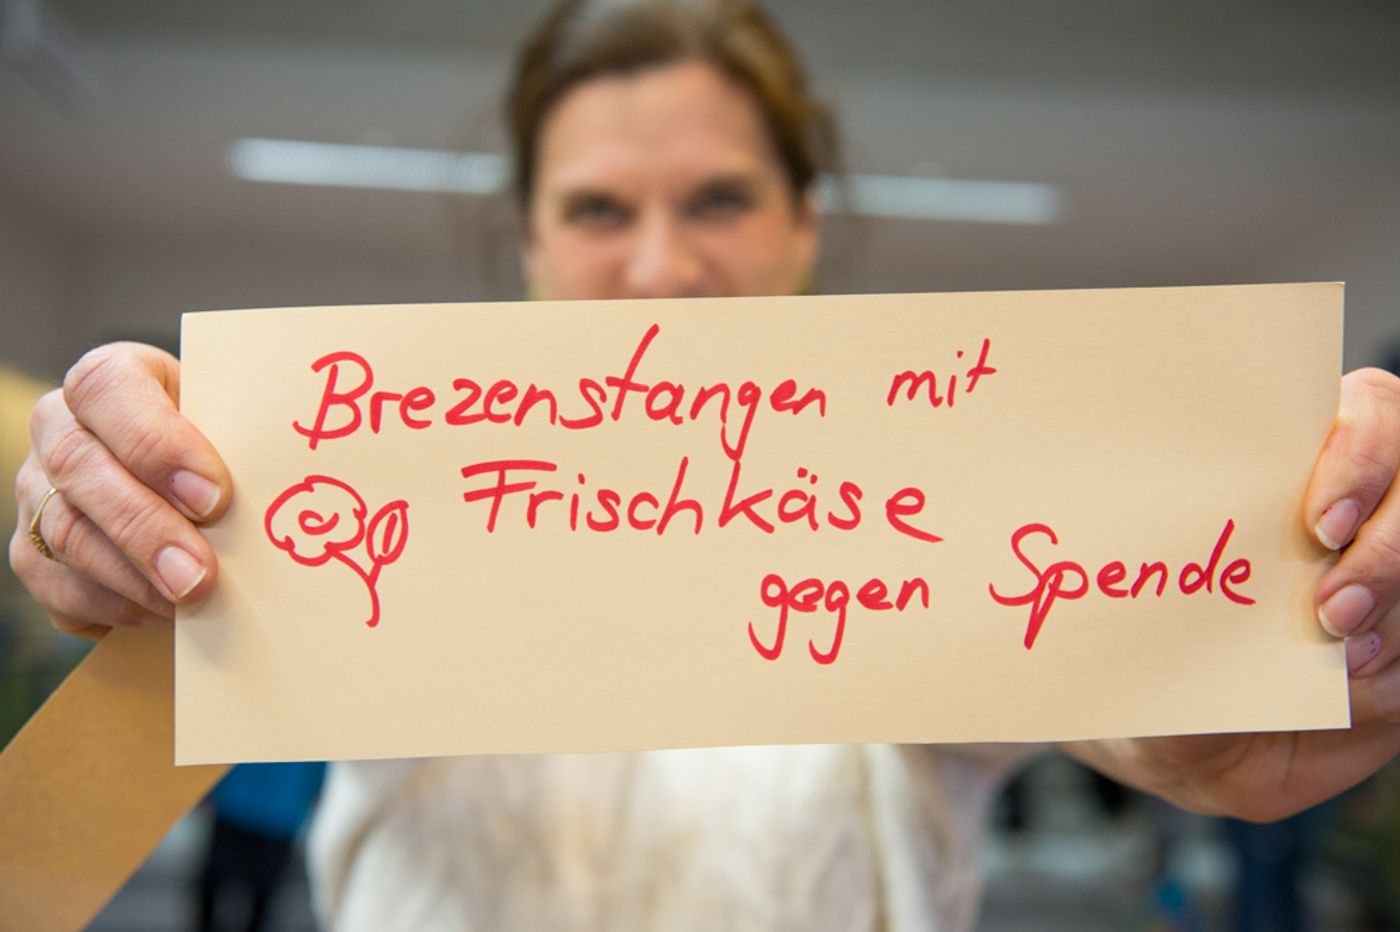 Brezenstangen mit
Frischkäse
gegen Spende